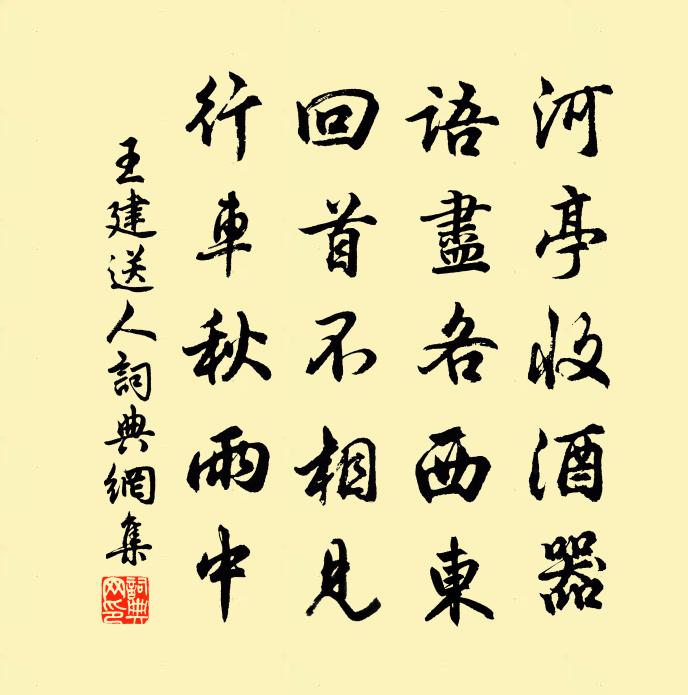 河亭收酒器
語盡各西東
回首不相見
行車秋雨中
王建送人詞典網集
詞典网印